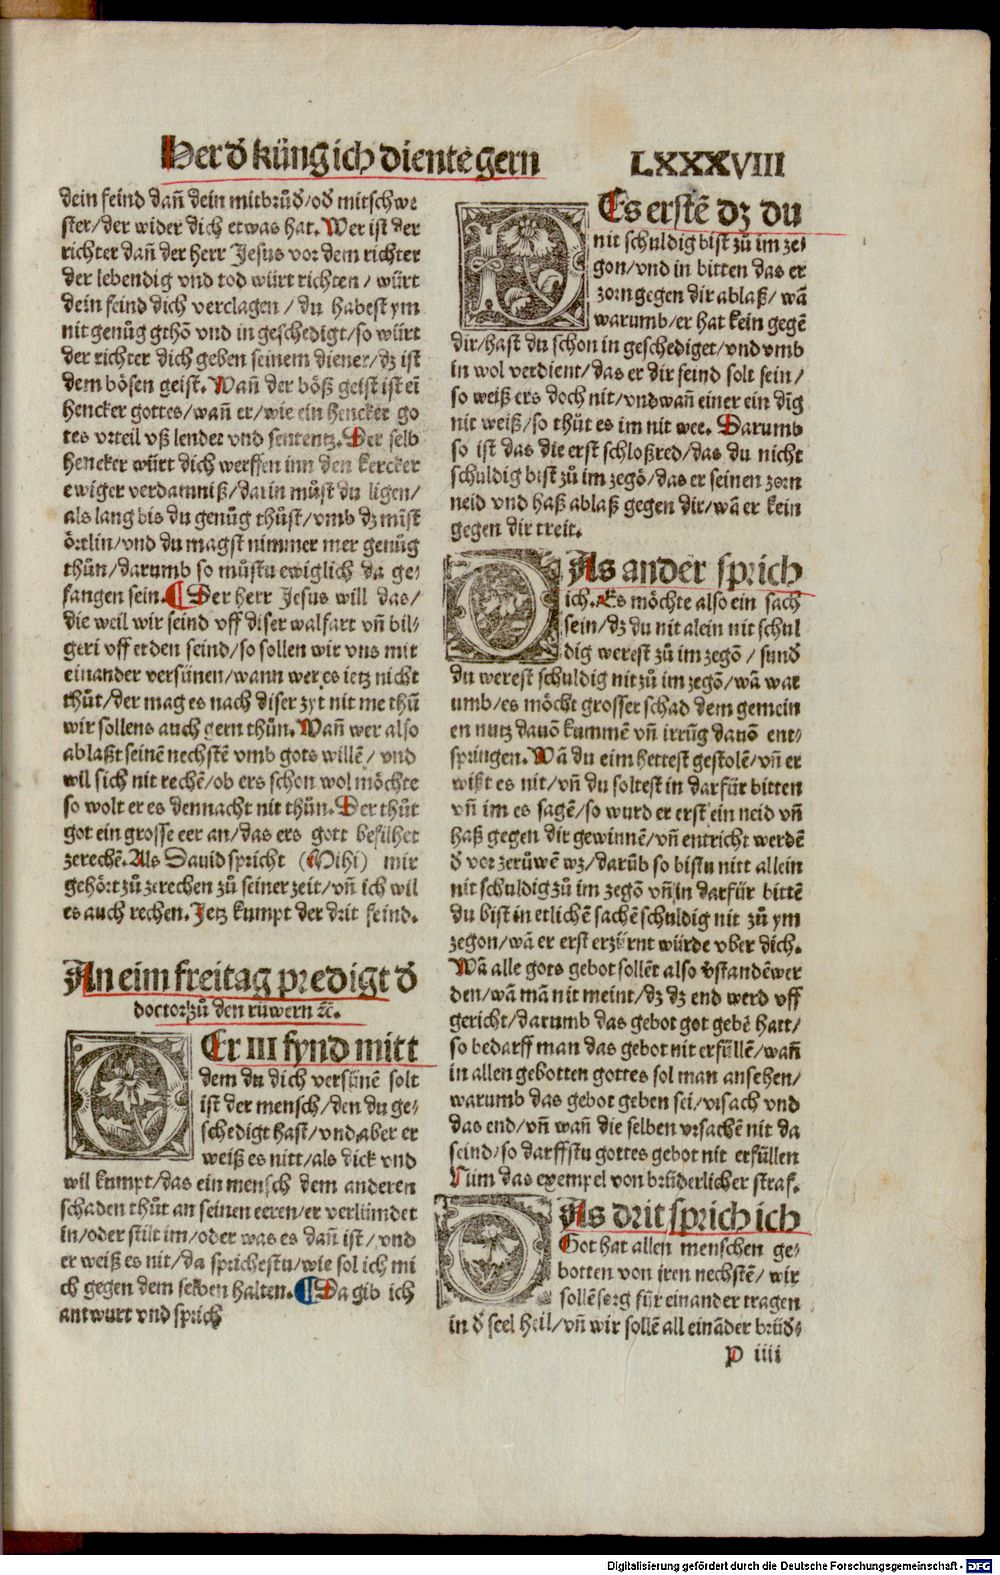 Her dʼ küng ich diente gern LXXXVIII
dein feind dañ dein mitbrůdʼ/odʼ mitschwe
ster/der wider dich etwas hat. Wer ist der
richter dañ der herr Jesus vor dem richter
der lebendig vnd tod würt richten/ würt
dein feind dich verclagen/ du habest ym
nit genůg gthõ vnd in geschedigt/so würt
der richter dich geben seinem diener/dz ist
dem bösen geist. Wañ der böß geist ist eĩ
hencker gottes/wañ er/wie ein hencker go
tes vrteil vß lendet vnd sententz. Der selb
hencker würt dich werffen inn den kercker
ewiger verdamniß/darin můst du ligen/
als lang bis du genůg thůst/vmb dz mĩst
örtlin/vnd du magst nimmer mer genůg
thůn/darumb so můstu ewiglich da ge⸗
fangen sein. ¶ Der herr Jesus will das/
die weil wir seind vff diser walfart vñ bil⸗
geri vff erden seind/so sollen wir vns mit
einander versünen/wann wer es ietz nicht
thůt/der mag es nach diser zyt nit me thů
wir sollens auch gern thůn. Wañ wer also
ablaßt seinẽ nechstẽ vmb gots willẽ/ vnd
wil sich nit rechẽ/ob ers schon wol möchte
so wolt er es dennacht nit thůn. Der thůt
got ein grosse eer an/das ers gott befilhet
zerechẽ. Als Dauid spricht (Mihi) mir
gehört zů zerechen zů seiner zeit/vñ ich wil
es auch rechen. Jetz kumpt der drit feind.
An eim freitag predigt dʼ
doctor zů den rüwern ꝛc.
DEr III fynd mitt
dem du dich versünẽ solt
ist der mensch/den du ge⸗
schedigt hast/vnd aber er
weiß es nitt/als dick vnd
wil kumpt/das ein mensch dem anderen
schaden thůt an seinen eeren/er verlümdet
in/oder stilt im/oder was es dañ ist/ vnd
er weiß es nit/da sprichestu/wie sol ich mi
ch gegen dem selben halten. ¶ Da gib ich
antwurt vnd sprich
DEs erstẽ dz du
nit schuldig bist zů im ze⸗
gon/vnd in bitten das er
zorn gegen dir ablaß/ wã
warumb/er hat kein gegẽ
dir/hast du schon in geschediget/vnd vmb
in wol verdient/das er dir feind solt sein/
so weiß ers doch nit/vnd wañ einer ein dĩg
nit weiß/so thůt es im nit wee. Darumb
so ist das die erst schloßred/das du nicht
schuldig bist zů im zegõ/das er seinen zorn
neid vnd haß ablaß gegen dir/wã er kein
gegen dir treit.
DAs ander sprich
ich. Es möchte also ein sach
sein/dz du nit alein nit schul
dig werest zů im zegõ/ sundʼ
du werest schuldig nit zů im zegõ/wã war
umb/es möcht grosser schad dem gemein
en nutz dauõ kummẽ vñ irrũg dauõ ent⸗
springen. Wã du eim hettest gestolẽ/vñ er
wißt es nit/vñ du soltest in dar für bitten
vñ im es sagẽ/so wurd er erst ein neid vñ
haß gegen dir gewinnẽ/vñ entricht werdẽ
dʼ vor zerůwẽ wz/darũb so bistu nitt allein
nit schuldig zů im zegõ vñ in dar für bittẽ
du bist in etlichẽ sachẽ schuldig nit zů ym
zegon/wã er erst erzürnt würde vber dich.
Wã alle gots gebot sollẽt also vʼstandẽ wer
den/wã mã nit meint/dz dz end werd vff
gericht/darumb das gebot got gebẽ hatt/
so bedarff man das gebot nit erfüllẽ/wañ
in allen gebotten gottes sol man ansehen/
warumb das gebot geben sei/vrsach vnd
das end/vñ wañ die selben vrsachẽ nit da
seind/so darffstu gottes gebot nit erfüllen
Nim das exempel von brüderlicher straf.
DAs drit sprich ich
Got hat allen menschen ge⸗
botten von iren nechstẽ/ wir
sollẽ sorg für einander tragen
in dʼ seel heil/vñ wir sollẽ all einãder brüdʼ⸗
P iiii
Digitalisierung gefördert durch die Deutsche Forschungsgemeinschaft - DFG